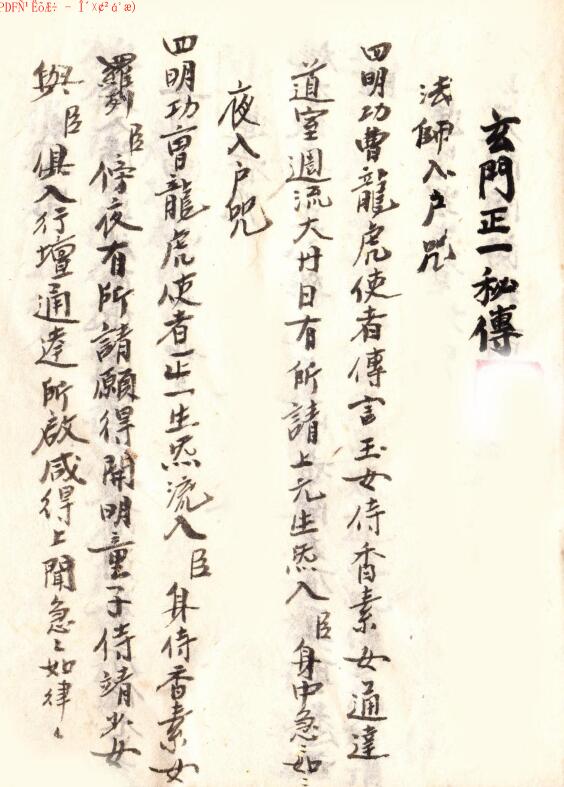 玄門正一秘傳
法師入户咒
四明功曹龍虎使者傳言玉女侍香素女通達
道室週流大廾日有所請上元生炁入臣身中急〻如〻
夜入户咒
四明功曹龍虎使者正一生炁流入臣身侍香素女
羅列臣傍夜有所請願得開明童子侍靖少女
與臣俱入行壇通達所啟咸得上聞急〻如律〻